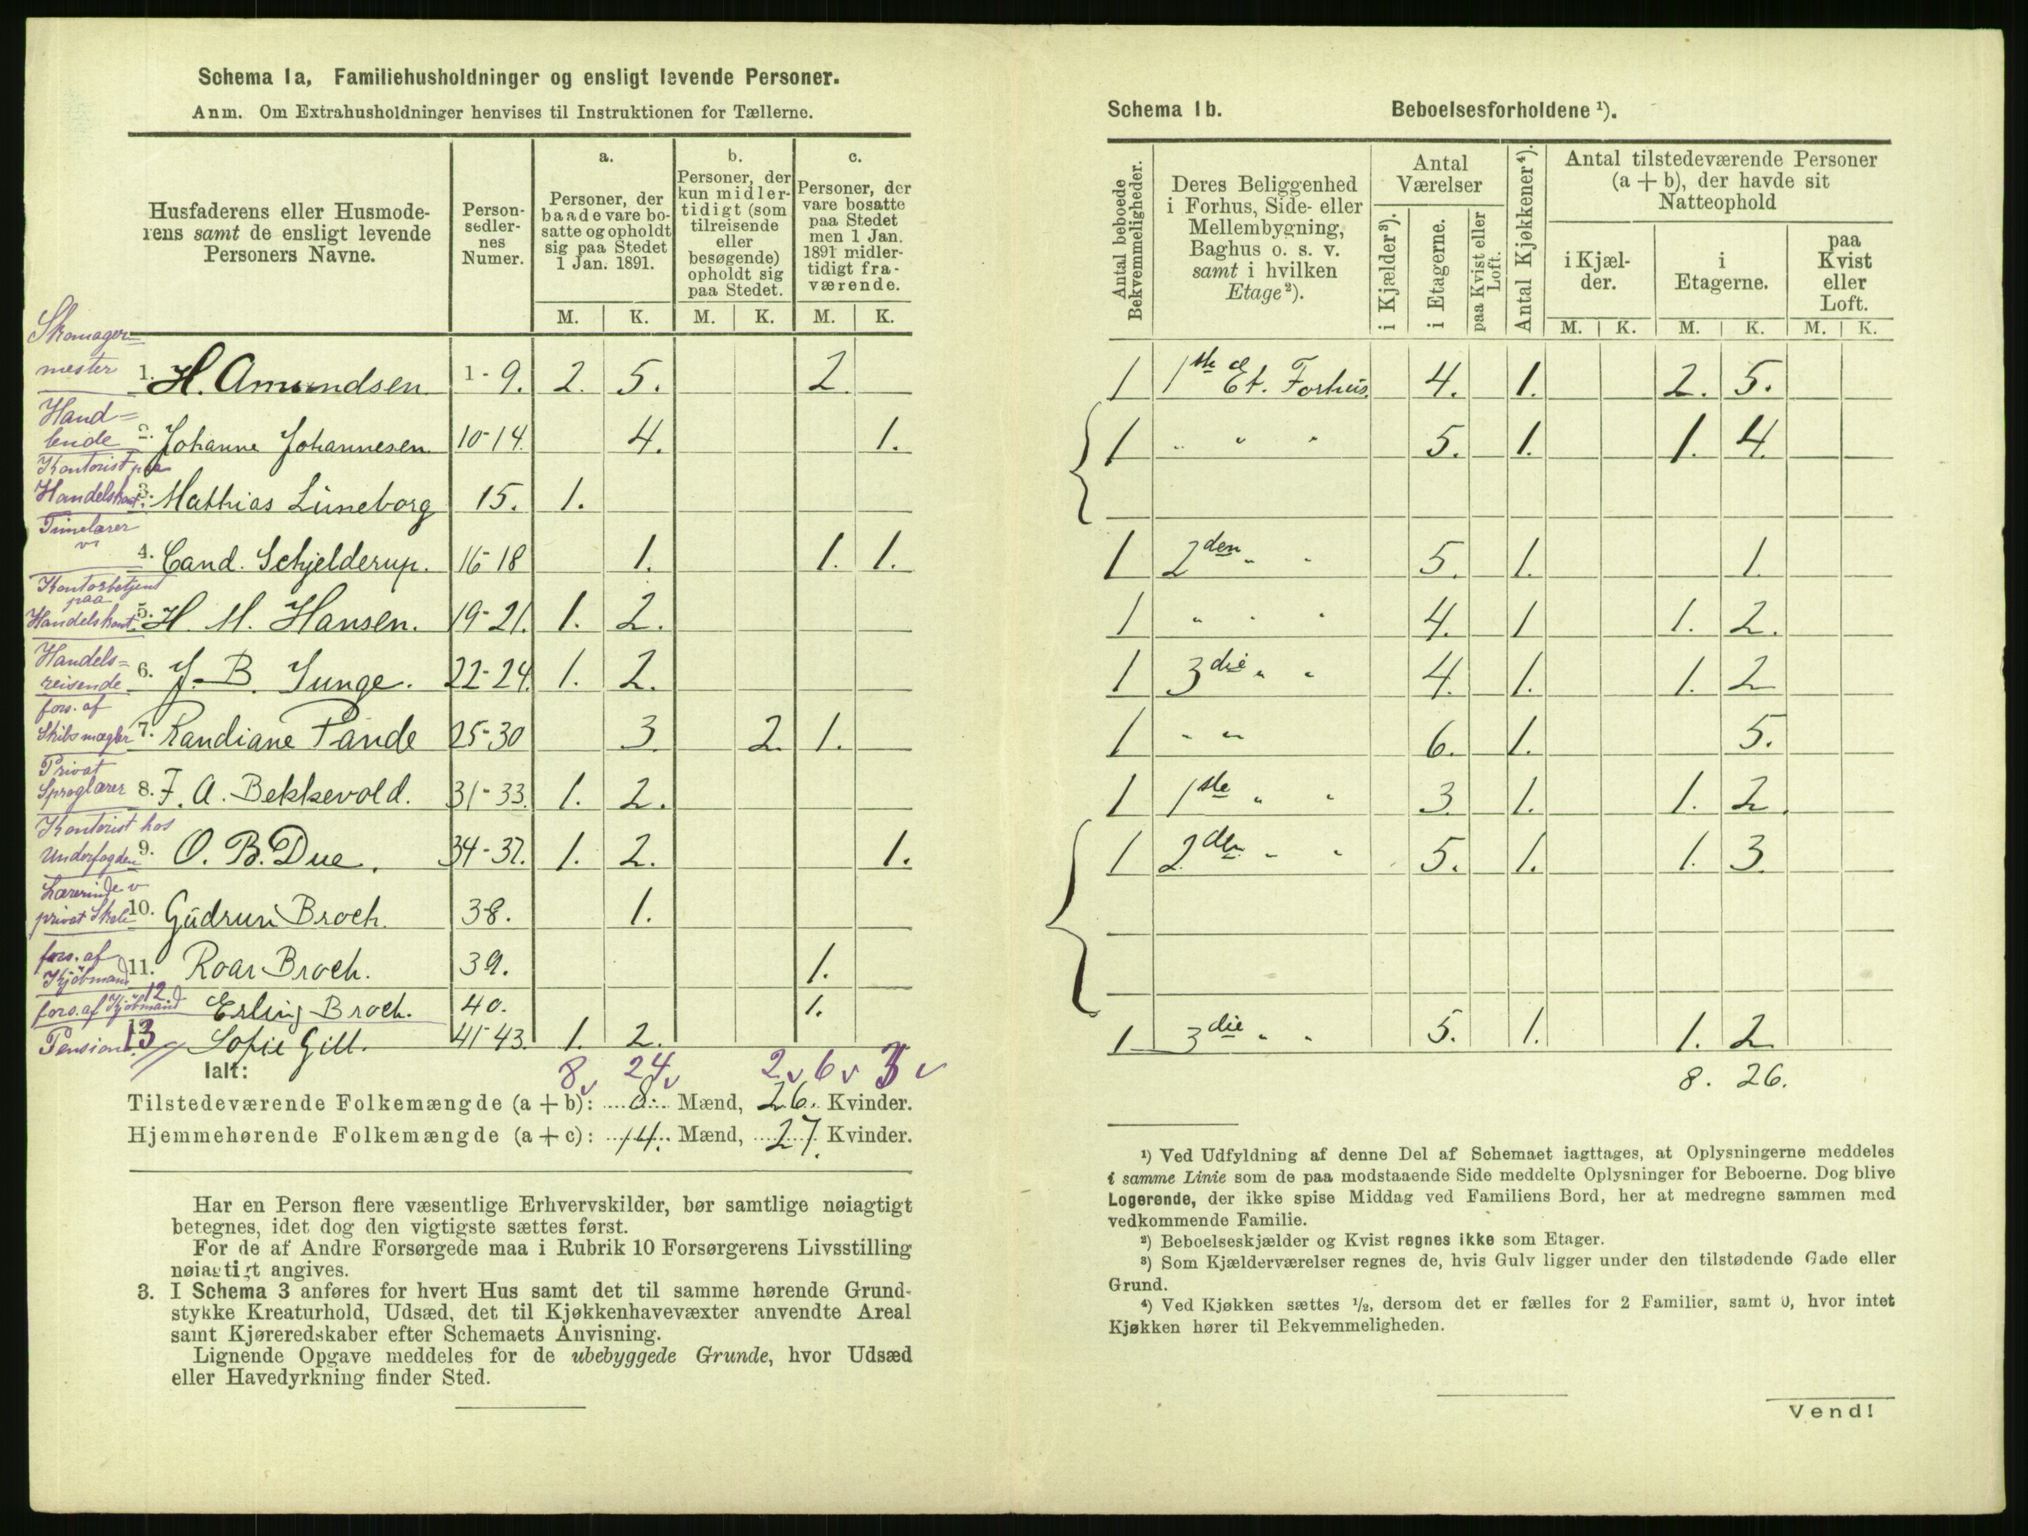 Schema 1a. Familiehusholdninger og ensligt levende Personer.
Anm. Om Extrahusholdninger henvises til Instruktionen for Tællerne.
Husfaderens eller Husmoderens samt de ensligt levende Personers Navne.
Personsedlernes Numer.
a. Personer, der baade vare bosatte og opholdt sig paa Stedet 1 Jan. 1891.
b. Personer, der kun midlertidigt (som tilreisende eller besøgende) opholdt sig paa Stedet.
c. Personer, der vare bosatte paa Stedet men 1 Jan. 1891 midlertidigt fraværende.
M. K. M. K. M. K.
Skomagermester 1. H. Amundsen 1-9. 2. 5. 2.
Handlende 2. Johanne Johannesen 10-14. 4. 1.
Kontorist paa Handelskont. 3. Mathias Lüneborg 15. 1.
Timelærer 4. Cand. Schjelderup. 16-18 1. 1. 1.
Kontorbetjent paa Handelskont. 5. H. M. Hansen. 19-21. 1. 2.
Handelsreisende 6. J. B. Junge. 22-24. 1. 2.
fors. af Skibsmægler 7. Randiane Pande 25-30 3. 2. 1.
Privat Sproglærer 8. F. A. Bekkevold. 31-33. 1. 2.
Kontorist hos Underfogden 9. O. B. Due. 34-37. 1. 2. 1.
Lærerinde v privat Skole 10. Gudrun Broch. 38. 1.
fors. af Kjøbmand 11. Roar Broch. 39. 1.
fors. af Kjøbmand 12 Erling Broch. 40. 1.
Pension. 13 Sofie Gill. 41-43. 1. 2.
Ialt: 8 24 2 6 3
Tilstedeværende Folkemængde (a + b): 8. Mænd, 26. Kvinder.
Hjemmehørende Folkemængde (a + c): 14. Mænd, 27. Kvinder.
Har en Person flere væsentlige Erhvervskilder, bør samtlige nøiagtigt
betegnes, idet dog den vigtigste sættes først.
For de af Andre Forsørgede maa i Rubrik 10 Forsørgerens Livsstilling
nøiagtigt angives.
3. I Schema 3 anføres for hvert Hus samt det til samme hørende Grund-
stykke Kreaturhold, Udsæd, det til Kjøkkenhavevæxter anvendte Areal
samt Kjøreredskaber efter Schemaets Anvisning.
Lignende Opgave meddeles for de ubebyggede Grunde, hvor Udsæd
eller Havedyrkning finder Sted.
Schema 1b. Beboelsesforholdene ¹).
Antal beboede Bekvemmeligheder.
Deres Beliggenhed i Forhus, Side- eller Mellembygning, Baghus o. s. v. samt i hvilken Etage²).
Antal Værelser
i Kjælder³).
i Etagerne.
paa Kvist eller Loft.
Antal Kjøkkener⁴).
Antal tilstedeværende Personer (a + b), der havde sit Natteophold
i Kjælder. i Etagerne. paa Kvist eller Loft.
M. K. M. K. M. K.
1 1ste Et. Forhus. 4. 1. 2. 5.
1 " " " 5. 1. 1. 4.
1 2den " " 5. 1. 1.
1 " " " 4. 1 1. 2.
1 3die " " 4. 1. 1. 2
1 " " 6. 1. 5.
1 1ste " " 3. 1. 1. 2.
1 2den " " 5. 1. 1. 3.
1 3die " " 5. 1. 1. 2
8. 26.
¹) Ved Udfyldning af denne Del af Schemaet iagttages, at Oplysningerne meddeles
i samme Linie som de paa modstaaende Side meddelte Oplysninger for Beboerne. Dog blive
Logerende, der ikke spise Middag ved Familiens Bord, her at medregne sammen med
vedkommende Familie.
²) Beboelseskjælder og Kvist regnes ikke som Etager.
³) Som Kjælderværelser regnes de, hvis Gulv ligger under den tilstødende Gade eller
Grund.
⁴) Ved Kjøkken sættes ½, dersom det er fælles for 2 Familier, samt 0, hvor intet
Kjøkken hører til Bekvemmeligheden.
Vend!